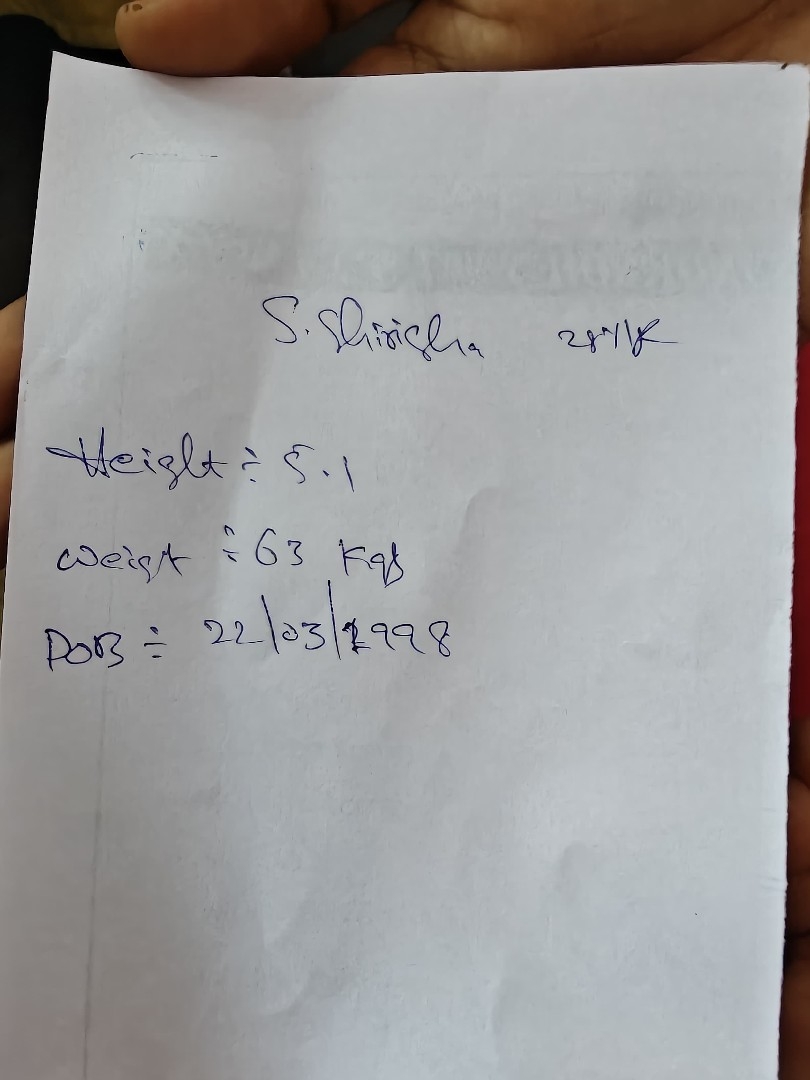 S. Shirisha
Height ÷ 5.1
Weigt ÷ 63 Kgs
DOB ÷ 22/03/1998